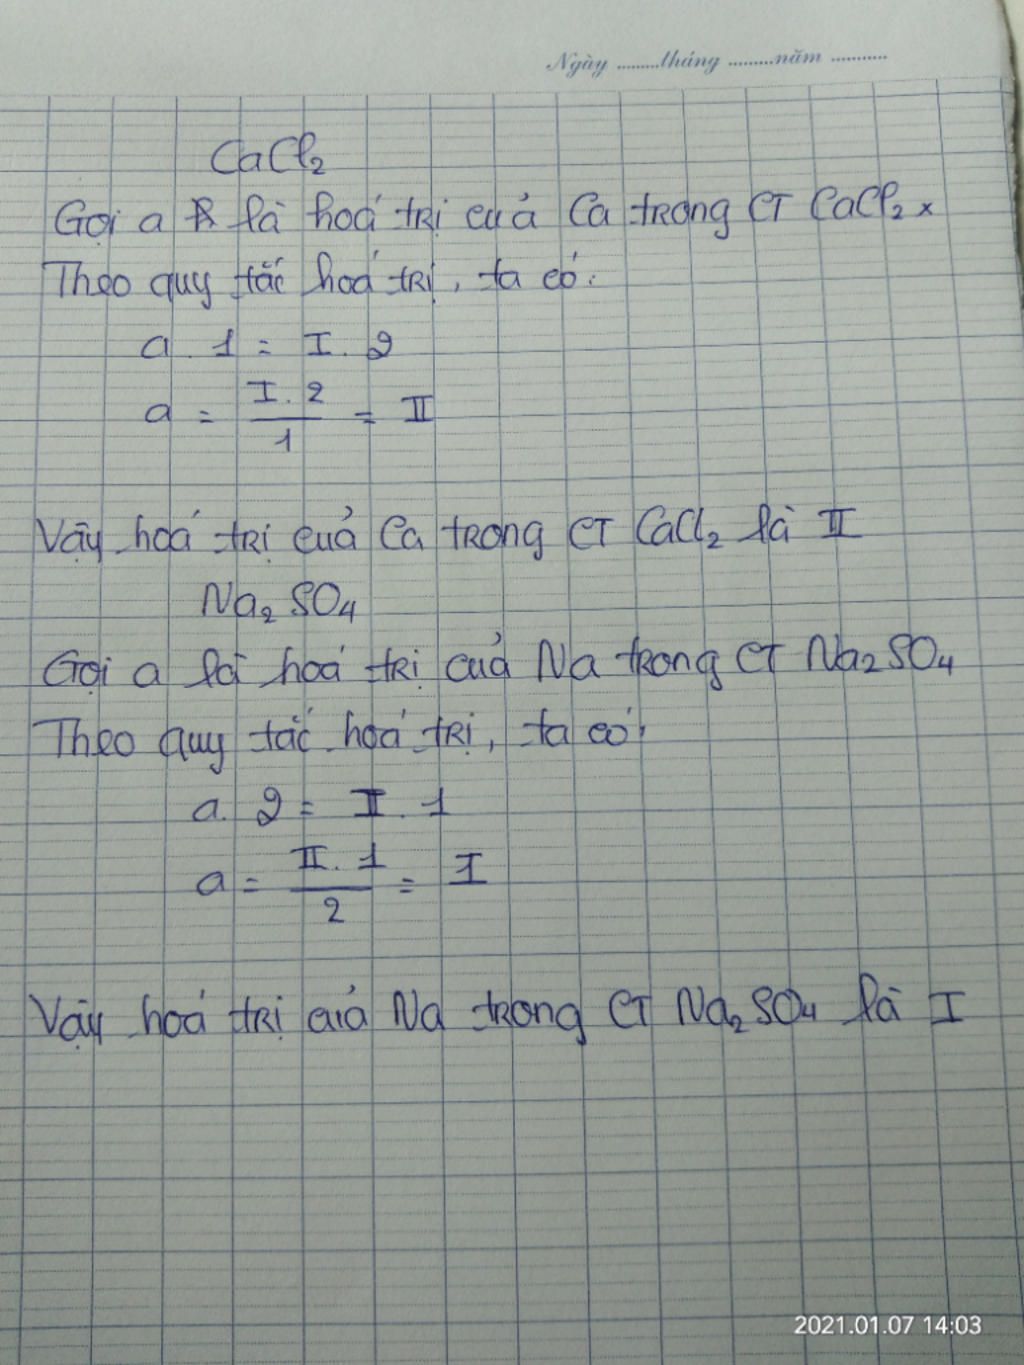 Ngày ........tháng .........năm ...........
CaCl₂
Gọi a là hoá trị của Ca trong CT CaCl₂ x
Theo quy tắc hoá trị, ta có:
a. 1 = I. 2
a = I. 2 / 1 = II
Vậy hoá trị của Ca trong CT CaCl₂ là II
Na₂SO₄
Gọi a là hoá trị của Na trong CT Na₂SO₄
Theo quy tắc hoá trị, ta có:
a. 2 = II. 1
a = II. 1 / 2 = I
Vậy hoá trị của Na trong CT Na₂SO₄ là I
2021.01.07 14:03